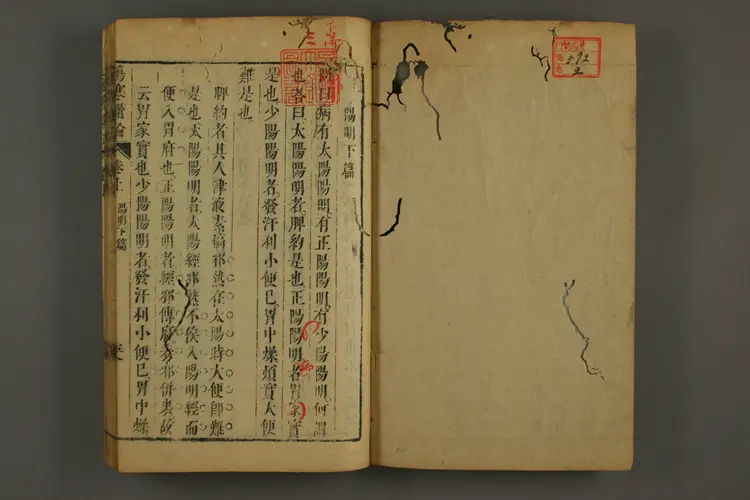 陽明下篇
問曰病有太陽陽明有正陽陽明有少陽陽明何謂
也答曰太陽陽明者脾約是也正陽陽明者胃家實
是也少陽陽明者發汗利小便已胃中燥煩實大便
難是也
脾約者其人津液素槁邪熱在太陽時大便即難
是也太陽陽明者太陽經邪熱不俟入陽明經而
便入胃府也正陽陽明者經邪傳府
云胃家實也少陽陽明者發汗利小便已胃中燥
傷寒纘論
卷上
陽明下篇